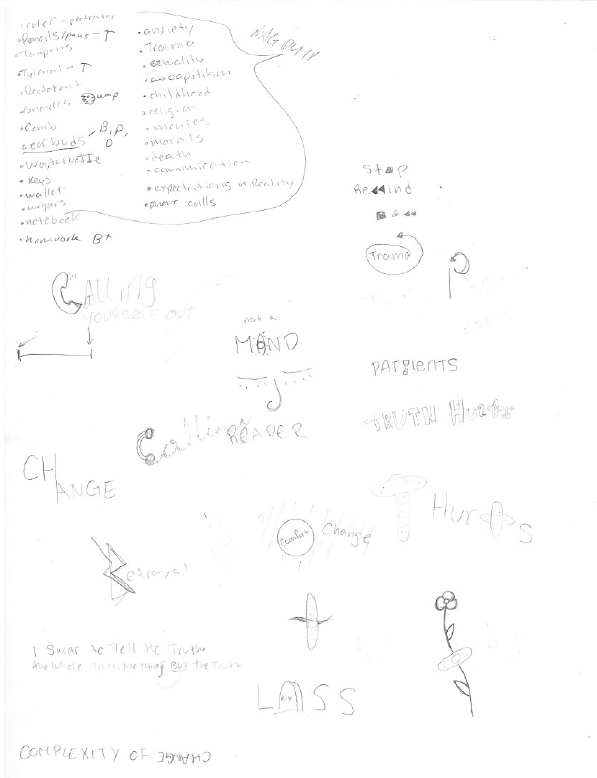 • ruler
• Pencils/pens - T
• Tampons
• Tylenol - T
• Deodorant
• Comb
• ear buds
B, P,
D
• Waterbottle
• Keys
• wallet
• notebook
• Homework
• anxiety
• Trauma
• sexuality
• childhood
• religion
• movies
• morals
• death
• communication
• expectations n Reality
• phone calls
Stop
Rewind
Trama
Calling
yourself out
not a
MIND
READER
PATIENTS
Calling
TRUTH Hurts
CHANGE
T Hurts
Comfort
Change
Betrayal
I Swear to Tell the Truth
the whole Truth, Nothing But the Truth
RIP
LOSS
COMPLEXITY OF CHANGE